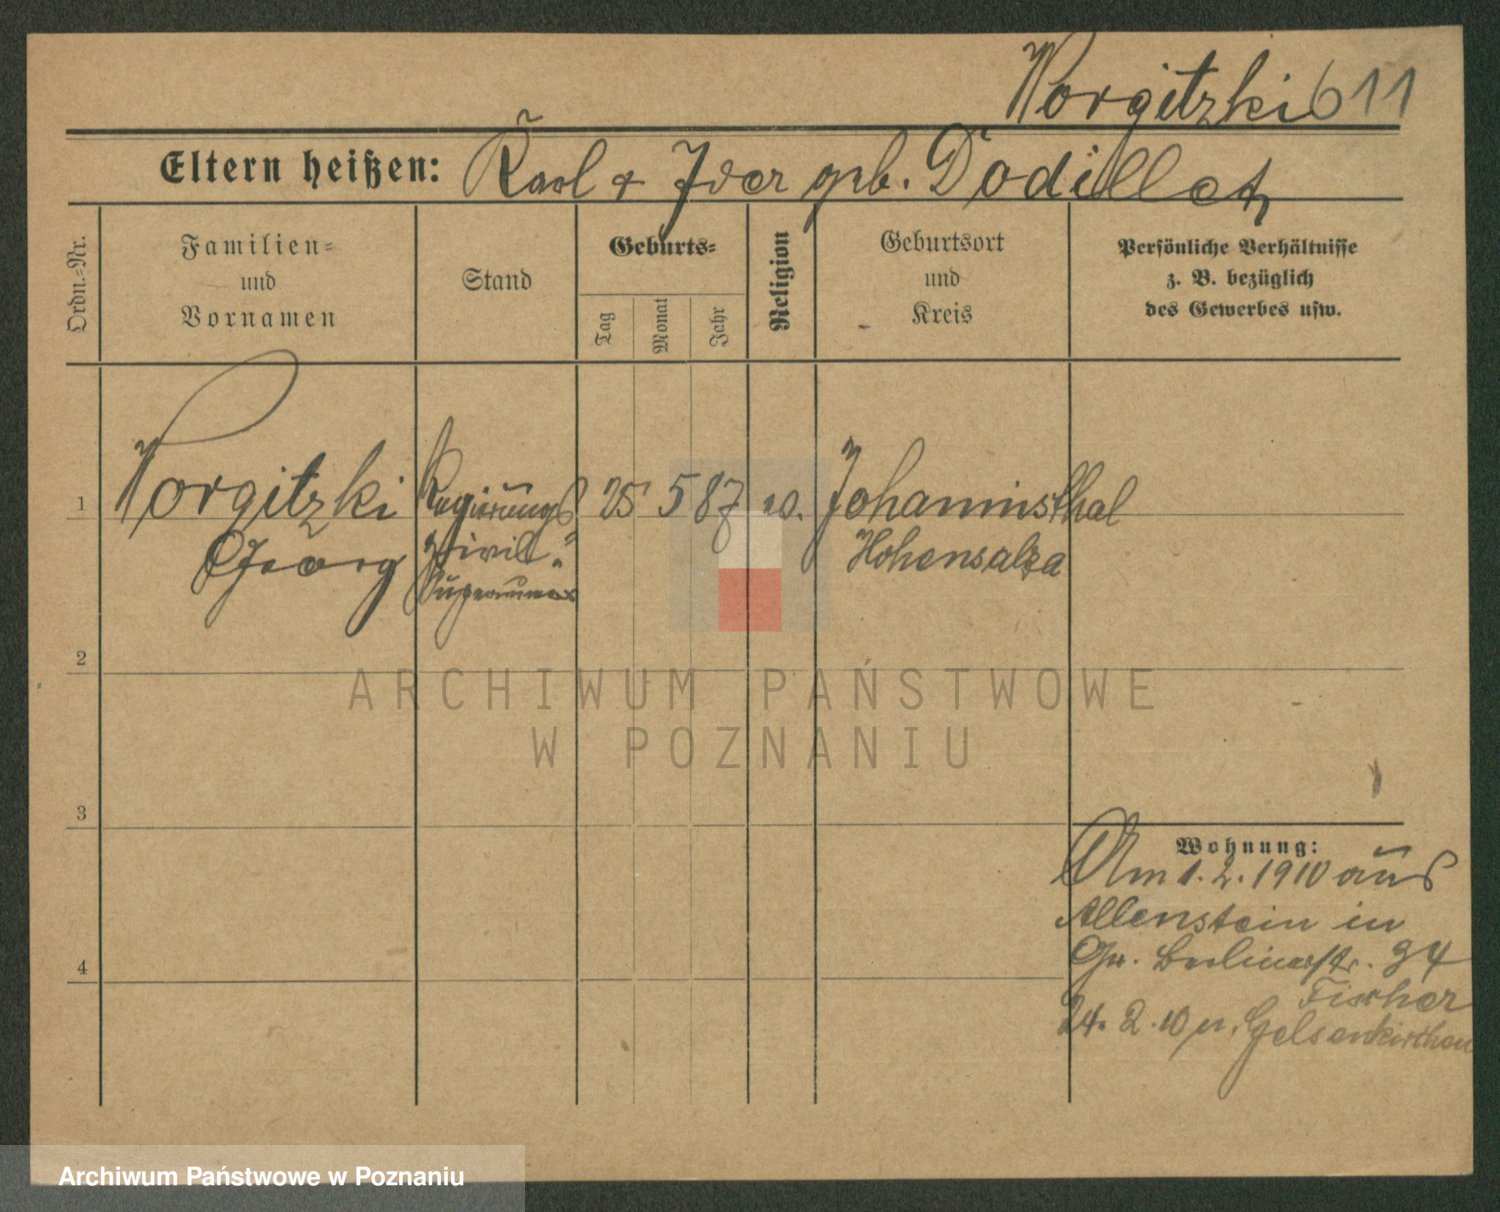 Worgitzki 611
Eltern heißen: Karl & Ida geb. Dodillet
Ordn.=Nr.
Familien=
und
Vornamen
Stand
Geburts=
Tag
Monat
Jahr
Religion
Geburtsort
und
Kreis
Persönliche Verhältnisse
z. B. bezüglich
des Gewerbes usw.
1
Worgitzki
Georg
Regierungs
Zivil=
Supernumerar
25 5 87
ev.
Johannisthal
Hohensalza
2
3
4
Wohnung:
Am 1. 2. 1910 aus
Allenstein in
Gr. Berlinerstr. 94
Fischer
24. 2. 10 n. Gelsenkirchen
ARCHIWUM PAŃSTWOWE
W POZNANIU
Archiwum Państwowe w Poznaniu